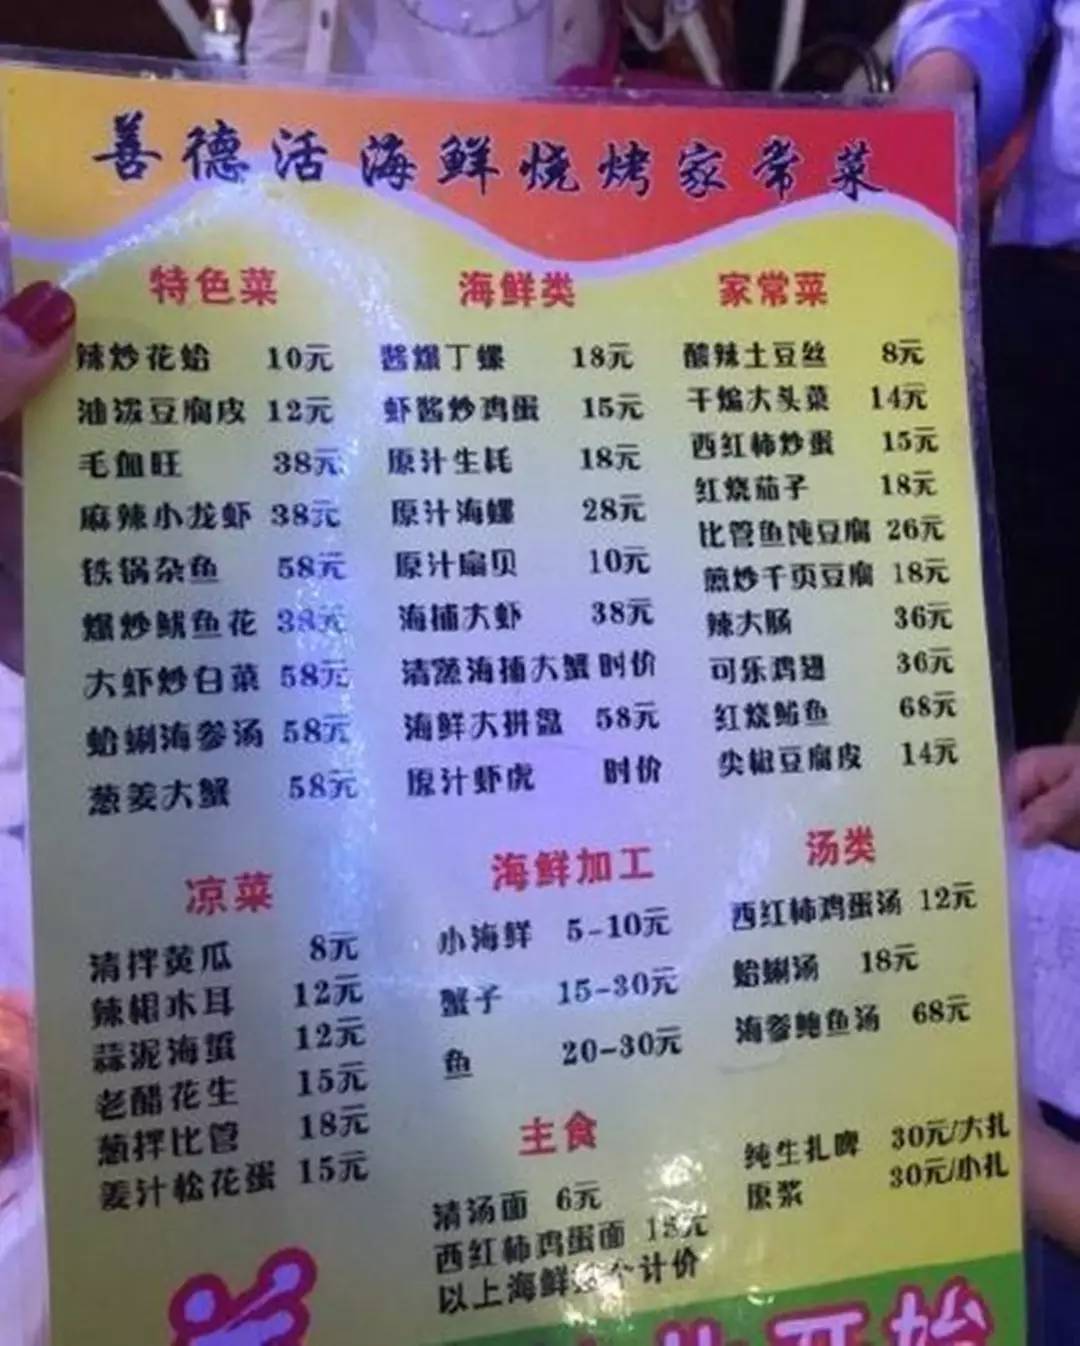 善德活海鲜烧烤家常菜
特色菜
辣炒花蛤 10元
油泼豆腐皮 12元
毛血旺 38元
麻辣小龙虾 38元
铁锅杂鱼 58元
爆炒鱿鱼花 38元
大虾炒白菜 58元
蛤蜊海参汤 58元
葱姜大蟹 58元
海鲜类
酱爆丁螺 18元
虾酱炒鸡蛋 15元
原汁生耗 18元
原汁海螺 28元
原汁扇贝 10元
海捕大虾 38元
清蒸海捕大蟹 时价
海鲜大拼盘 58元
原汁虾虎 时价
家常菜
酸辣土豆丝 8元
干煸大头菜 14元
西红柿炒蛋 15元
红烧茄子 18元
比管鱼饨豆腐 26元
煎炒千页豆腐 18元
辣大肠 36元
可乐鸡翅 36元
红烧鲅鱼 68元
尖椒豆腐皮 14元
凉菜
清拌黄瓜 8元
辣根木耳 12元
蒜泥海蜇 12元
老醋花生 15元
葱拌比管 18元
姜汁松花蛋 15元
海鲜加工
小海鲜 5-10元
蟹子 15-30元
鱼 20-30元
汤类
西红柿鸡蛋汤 12元
蛤蜊汤 18元
海参鲍鱼汤 68元
主食
清汤面 6元
西红柿鸡蛋面 18元
以上海鲜 个计价
纯生扎啤 30元/大扎
原浆 30元/小扎
开始